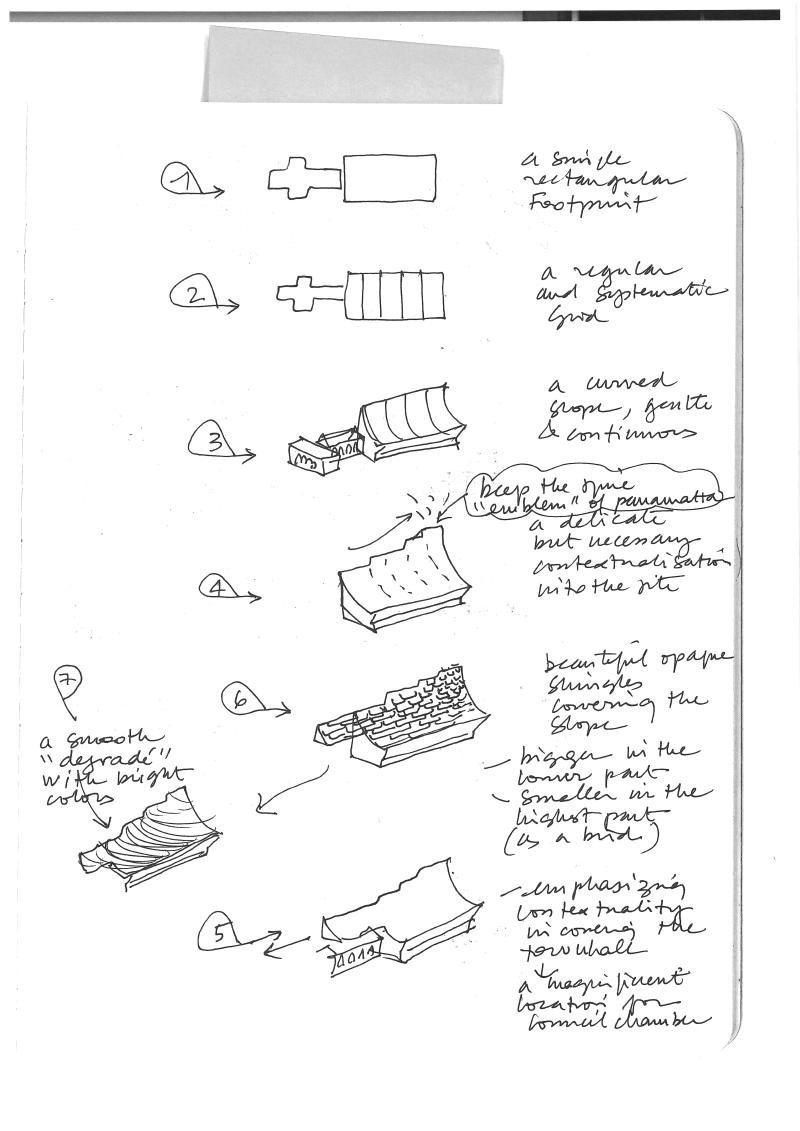 1
a simple
rectangular
Footprint
2
a regular
and systematic
Grid
3
a curved
slope, gentle
& continuous
keep the
"emblem" of parramatta
4
a delicate
but necessary
contextualisation
into the site
7
a smooth
"degradé"
with bright
colors
6
beautiful opaque
shingles
covering the
slope
- bigger in the
lower part
- smaller in the
highest part
(as a bird)
5
- emphasizing
contextuality
in covering the
townhall
a magnificent
location for
council chamber